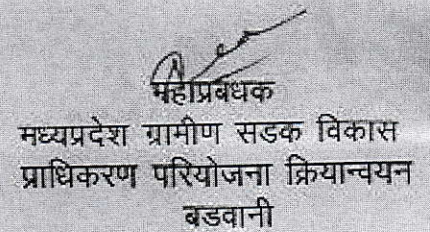 महाप्रबंधक
मध्यप्रदेश ग्रामीण सडक विकास
प्राधिकरण परियोजना क्रियान्वयन
बडवानी